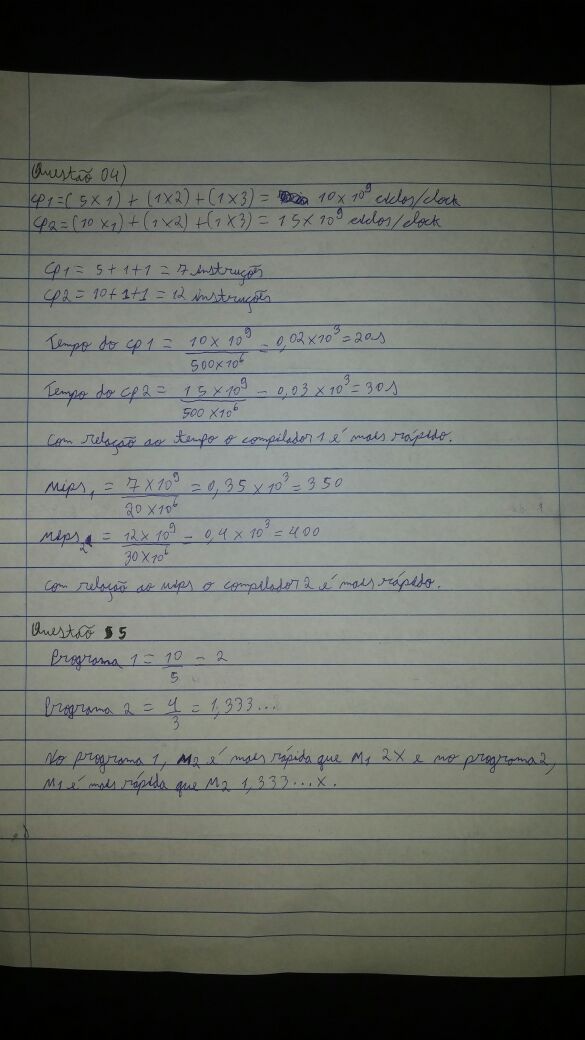 Questão 04)
CP1=(5x1)+(1x2)+(1x3)= 10x10⁹ ciclos/clock
CP2=(10x1)+(1x2)+(1x3)=15x10⁹ ciclos/clock
CP1 = 5+1+1 = 7 instruções
CP2 = 10+1+1 = 12 instruções
Tempo do CP1 = 10x10⁹/500x10⁶ = 0,02x10³ = 20s
Tempo do CP2 = 15x10⁹/500x10⁶ = 0,03x10³ = 30s
Com relação ao tempo o compilador 1 é mais rápido.
Mips₁ = 7x10⁹/20x10⁶ = 0,35x10³ = 350
Mips₂ = 12x10⁹/30x10⁶ = 0,4x10³ = 400
Com relação ao Mips o compilador 2 é mais rápido.
Questão 5
Programa 1 = 10/5 = 2
Programa 2 = 4/3 = 1,333...
No programa 1, M2 é mais rápida que M1 2X e no programa 2,
M1 é mais rápida que M2 1,333...x.